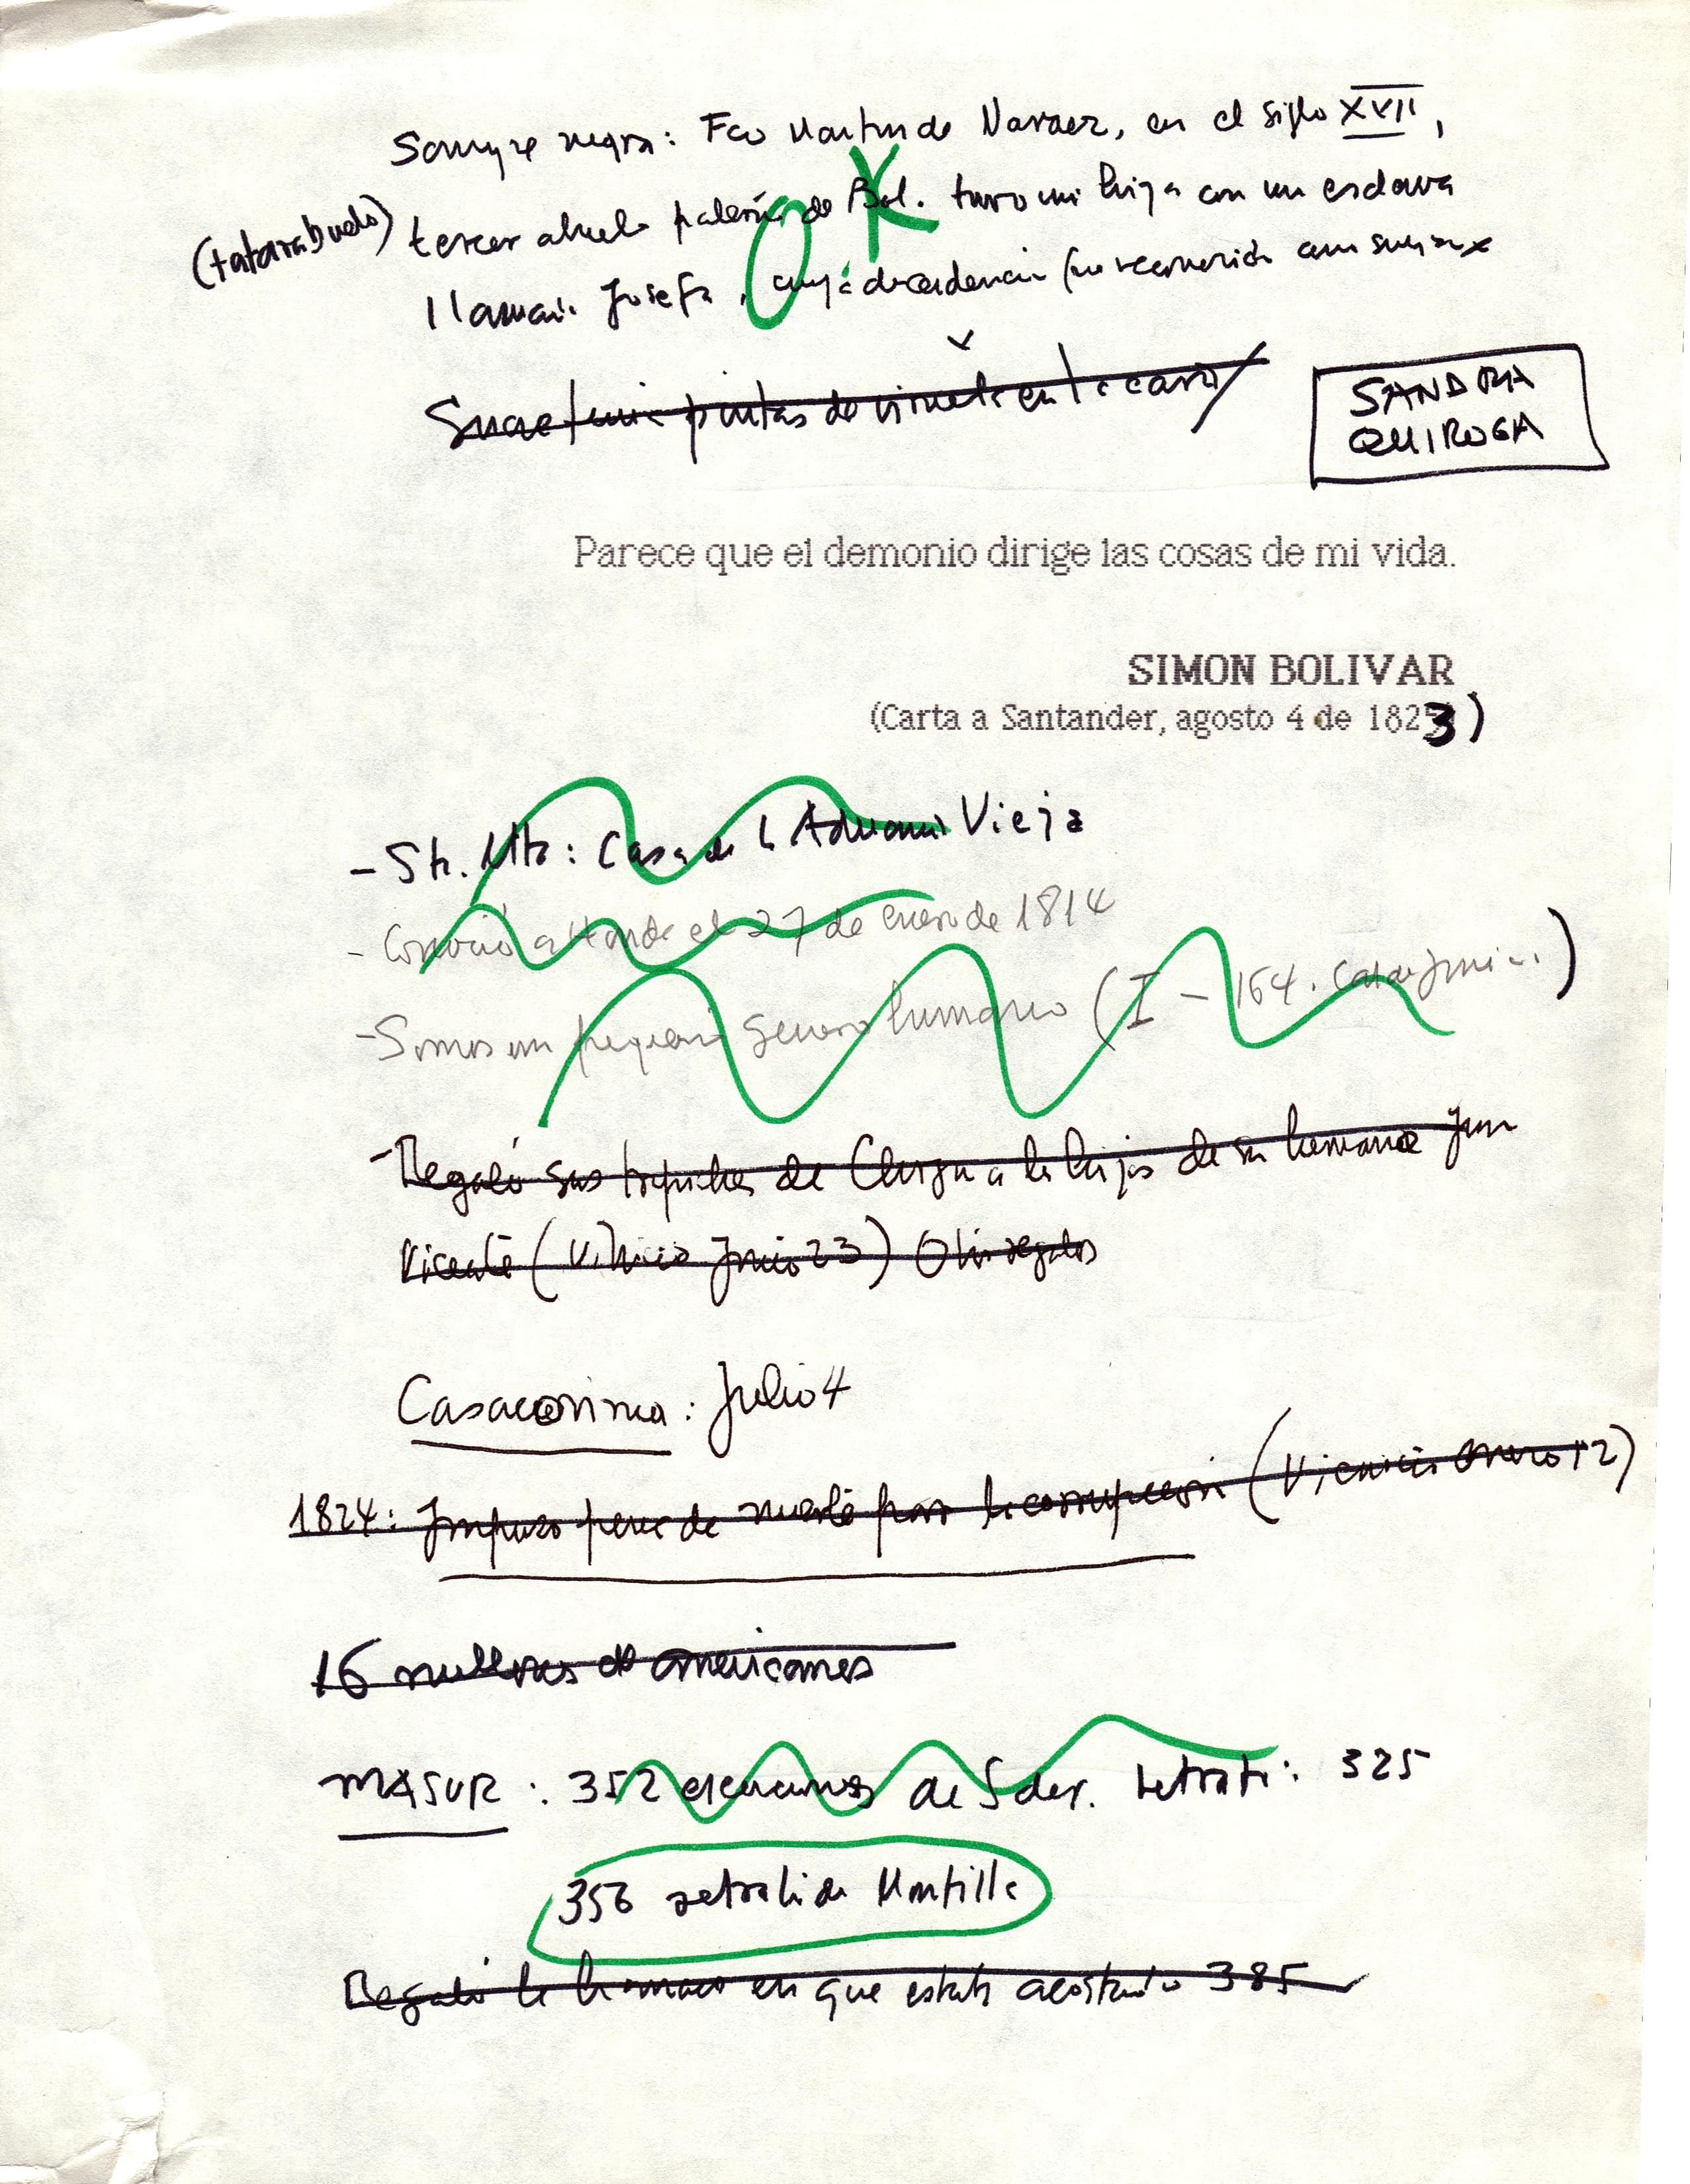 Sangre negra: Fco Martin de Narvaez, en el siglo XVII,
(tatarabuelo) tercer abuelo paterno de Bol. tuvo un hija con un esclava
llamada Josefa, cuya descendencia
OK
Sucre tenia pintas de viruela en la cara
SANDRA
QUIROGA
Parece que el demonio dirige las cosas de mi vida.
SIMON BOLIVAR
(Carta a Santander, agosto 4 de 1823)
- Sta. Mta: Casa de la Aduana Vieja
- Conoció a Hande el 27 de enero de 1814
- Somos un pequeño genero humano (I - 164. Carta Jamaica.)
- Regaló sus trapiches de Chirgua a los hijos de su hermano Juan
Vicente (Vinicio Junio 23) Otros regalos
Casacoima: Julio 4
1824: Impuso pena de muerte para la corrupcion (Vinicio enero 12)
16 millones de americanos
MASUR: 352 de Sder. retrato: 325
356 retrato de Montilla
Regaló la hamaca en que estaba acostado 385